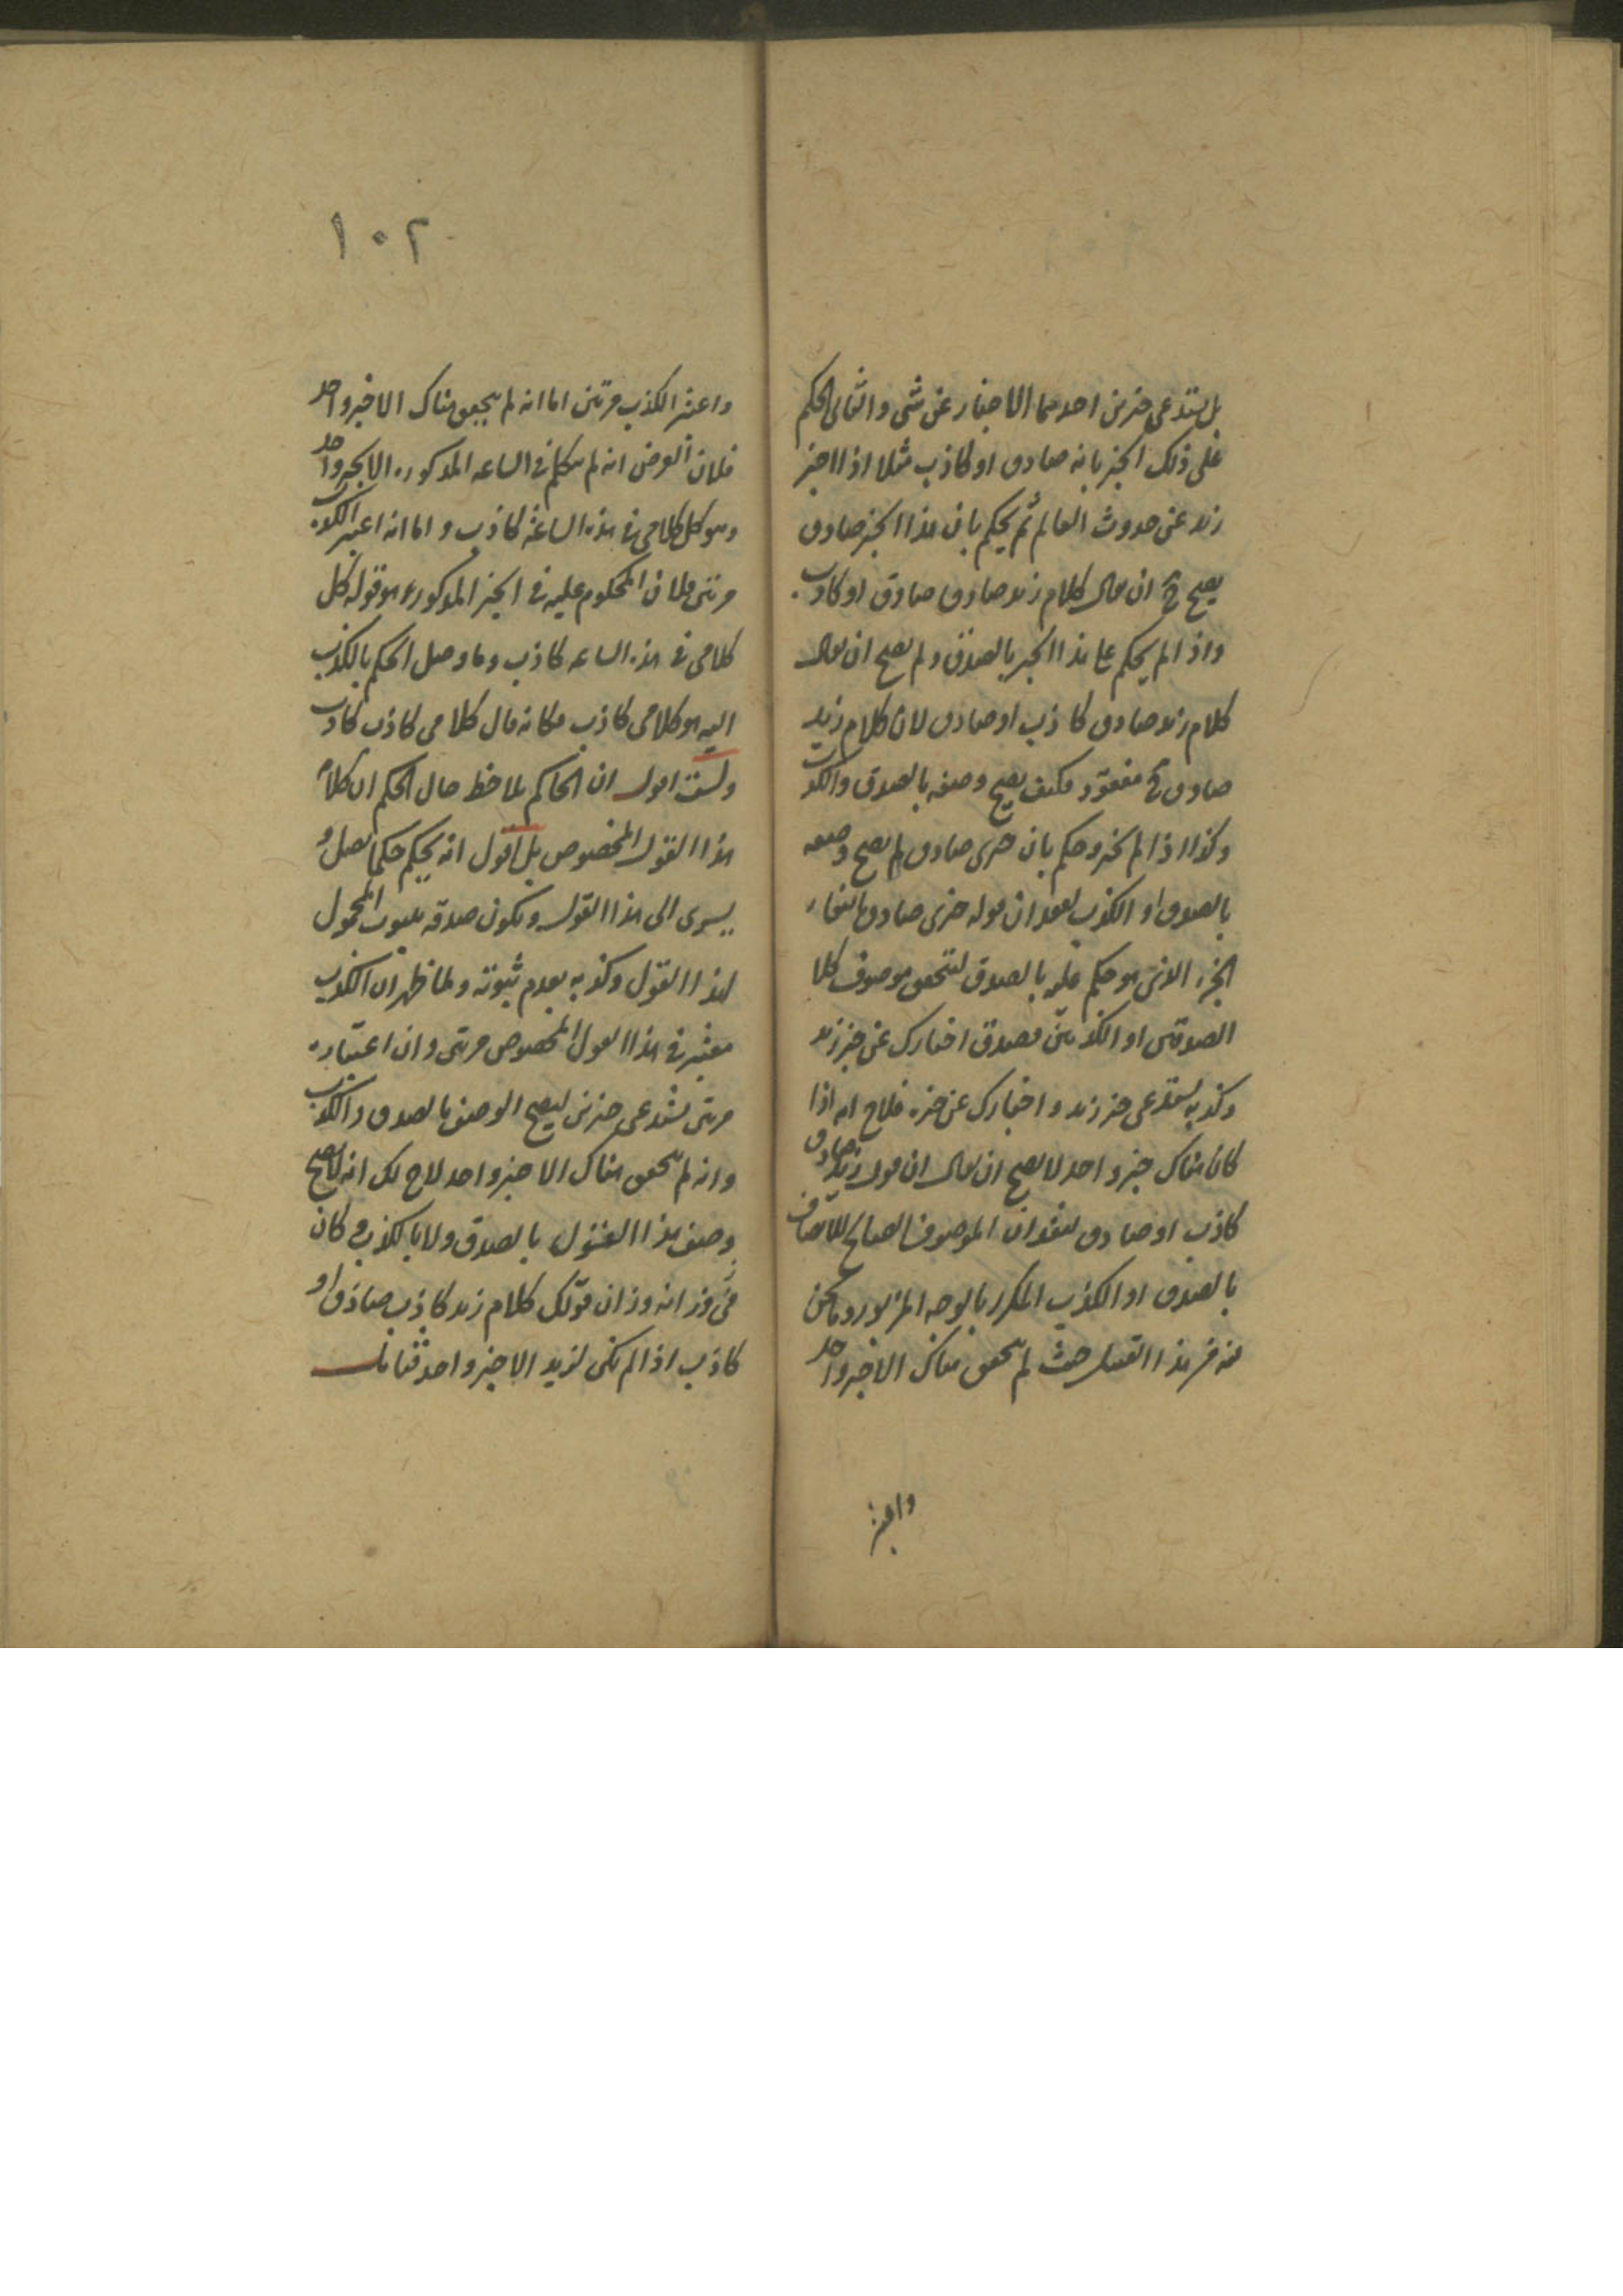 بل يستدعى خبرين احدهما الاخبار عن شى والثانى الحكم
على ذلك الخبر بانه صادق او كاذب مثلا اذا اخبر
زيد عن حدوث العالم ثم يحكم بان هذا الخبر صادق
يصح ح ان يقال كلام زيد صادق صادق او كاذب
واذا لم يحكم على هذا الخبر بالصدق ولم يصح ان يقال
كلام زيد صادق كاذب او صادق لان كلام زيد
صادق ح مفقود فكيف يصح وصفه بالصدق والكذب
وكذا اذا لم يخبر وحكم بان خبرى صادق لم يصح وصفه
بالصدق او الكذب لفقدان قوله خبرى صادق بانتفاء
الخبر الذى هو حكم عليه بالصدق لتحقق موصوف كلا
الصدقين او الكذبين فصدق اخبارك عن خبر زيد
وكذبه يستدعى خبر زيد واخبارك عن خبره فلاح انه اذا
كان هناك خبر واحد لا يصح ان يقال ان قول زيد صادق
كاذب او صادق لفقدان الموصوف الصالح للاتصاف
بالصدق او الكذب المكرر بالوجه المزبور وما نحن
فيه من هذا القبيل حيث لم يتحقق هناك الا خبر واحد
واعتبر
١٠٢
واعتبر الكذب مرتين اما انه لم يتحقق هناك الا خبر واحد
فلان الفرض انه لم يتكلم فى الساعه المذكوره الا بخبر واحد
وهو كل كلامى فى هذه الساعة كاذب و اما انه اعتبر الكذب
مرتين فلان المحكوم عليه فى الخبر المذكور هو قوله كل
كلامى فى هذه الساعه كاذب وما وصل الحكم بالكذب
اليه هو كلامى كاذب فكانه قال كلامى كاذب كاذب
ولست اقول ان الحاكم يلاحظ حال الحكم ان كلام
هذا القول المخصوص بل اقول انه يحكم حكما يصل و
يسرى الى هذا القول ويكون صدقه بثبوت المحمول
لهذا القول وكذبه بعدم ثبوته ولما ظهر ان الكذب
معتبر فى هذا القول المخصوص مرتين وان اعتباره
مرتين يستدعى خبرين ليصح الوصف بالصدق والكذب
وانه لم يتحقق هناك الا خبر واحد لاح لك انه لا يصح
وصف هذا القول بالصدق ولا بالكذب و كان
وزانه وزان قولك كلام زيد كاذب صادق او
كاذب اذا لم يكن لزيد الا خبر واحد